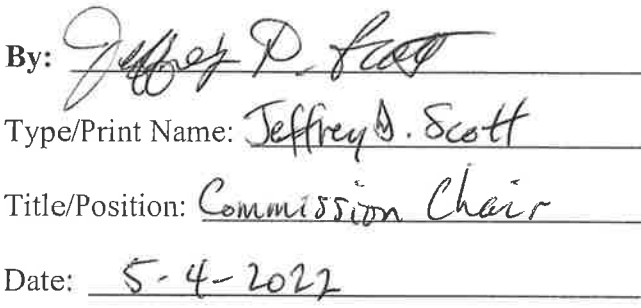 By: Jeffrey D. Scott
Type/Print Name: Jeffrey D. Scott
Title/Position: Commission Chair
Date: 5-4-2022